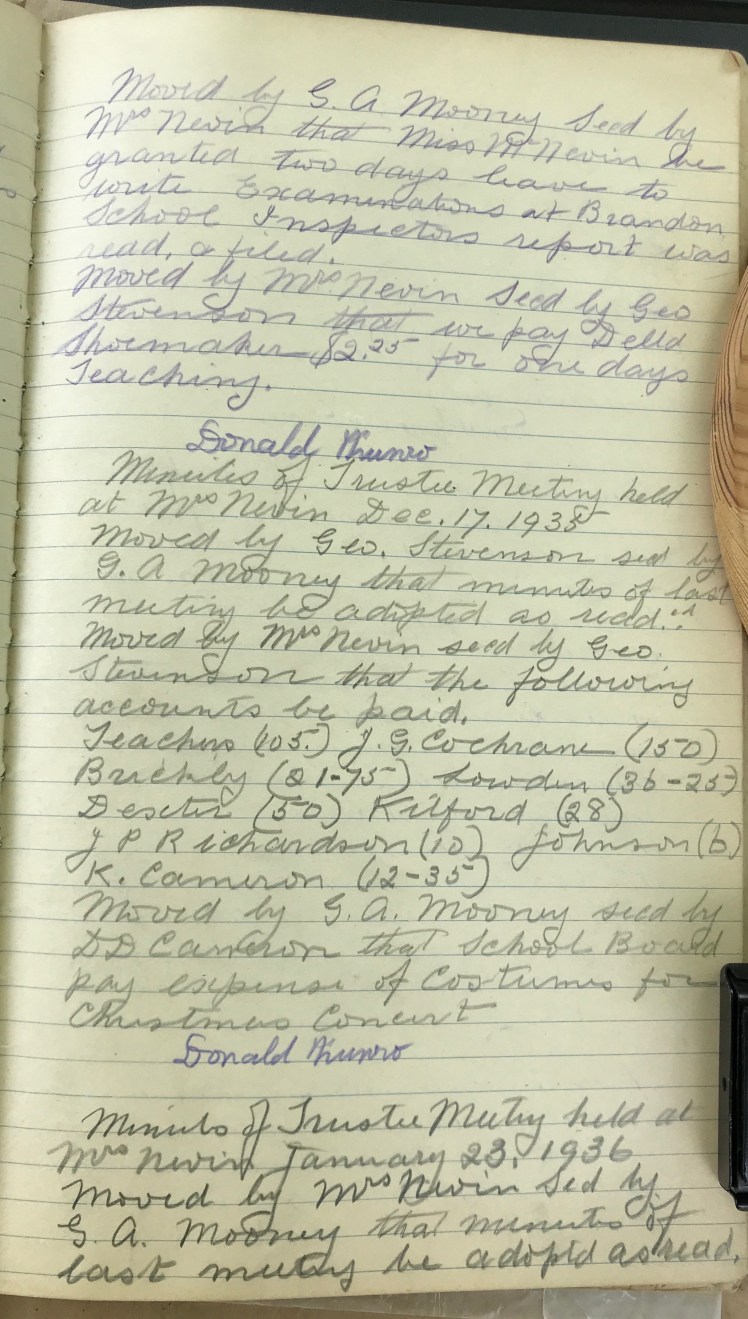 Moved by G. A Mooney Secd by
Mrs Nevin that Miss McNevin be
granted two days leave to
write Examinations at Brandon
School Inspectors report was
read, a filed.
Moved by Mrs Nevin Secd by Geo
Stevenson that we pay Della
Shoemaker $2.25 for one days
Teaching.
Donald Munro
Minutes of Trustee Meeting held
at Mrs Nevin Dec. 17. 1935
Moved by Geo. Stevenson secd by
G. A Mooney that minutes of last
meeting be adopted as read.
Moved by Mrs Nevin secd by Geo.
Stevenson that the following
accounts be paid.
Teachers (105.) J. G. Cochrane (150)
(21-75) Lowden (36-25)
Dexter (50) Kilford (28)
J P Richardson (10) Johnson (6)
K. Cameron (12-35)
Moved by G. A. Mooney secd by
D D Cameron that School Board
pay expense of Costumes for
Christmas Concert
Donald Munro
Minuts of Trustee Meetng held at
Mrs Nevin January 23, 1936
Moved by Mrs Nevin Secd by
G. A. Mooney that minutes of
last meeting be adoptd as read.